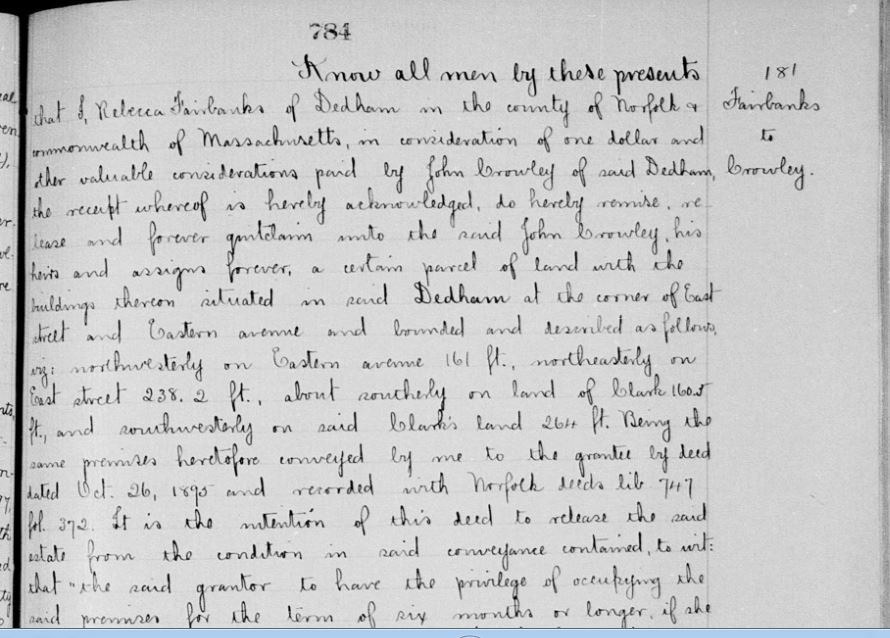 784
Know all men by these presents
181
that I, Rebecca Fairbanks of Dedham in the county of Norfolk &
Fairbanks
commonwealth of Massachusetts, in consideration of one dollar and
to
other valuable considerations paid by John Crowley of said Dedham,
Crowley.
the receipt whereof is hereby acknowledged, do hereby remise, re-
lease and forever quitclaim unto the said John Crowley, his
heirs and assigns forever, a certain parcel of land with the
buildings thereon situated in said Dedham at the corner of East
street and Eastern avenue and bounded and described as follows,
viz: northwesterly on Eastern avenue 161 ft., northeasterly on
East street 238.2 ft., about southerly on land of Clark 160.5
ft., and southwesterly on said Clark's land 264 ft. Being the
same premises heretofore conveyed by me to the grantee by deed
dated Oct. 26, 1895 and recorded with Norfolk deeds lib 747
fol. 372. It is the intention of this deed to release the said
estate from the condition in said conveyance contained, to wit:
that "the said grantor to have the privilege of occupying the
said premises for the term of six months or longer, if she